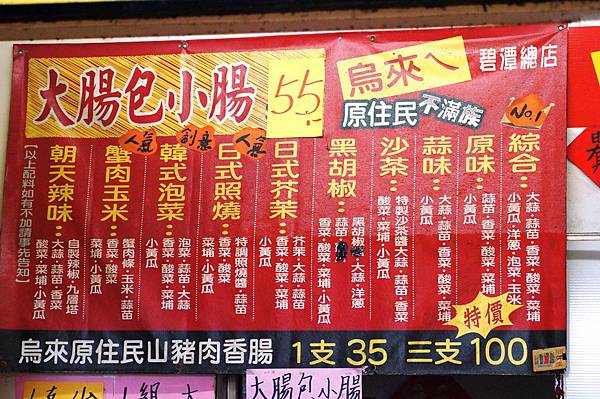 大腸包小腸
55
烏來ㄟ
原住民不滿族
碧潭總店
No.1
人氣
創意
人氣
綜合：大蒜·蒜苗·香菜·酸菜·菜埔
小黃瓜·洋蔥·泡菜·玉米
原味：蒜苗·香菜·酸菜·菜埔
小黃瓜
蒜味：大蒜·蒜苗·香菜·酸菜·菜埔
小黃瓜
沙茶：特製沙茶醬大蒜·蒜苗·香菜
酸菜·菜埔·小黃瓜
黑胡椒：黑胡椒·大蒜·洋蔥
蒜苗
香菜·酸菜·菜埔·小黃瓜
日式芥茉：芥茉·大蒜·蒜苗
香菜·酸菜·菜埔
小黃瓜
日式照燒：特調照燒醬·蒜苗
香菜·酸菜·菜埔
小黃瓜
韓式泡菜：泡菜·蒜苗·大蒜
香菜·酸菜·菜埔
小黃瓜
蟹肉玉米：蟹肉條·玉米·蒜苗
香菜·酸菜
菜埔·小黃瓜
朝天辣味：自製辣椒·九層塔
大蒜·蒜苗·香菜
酸菜·菜埔·小黃瓜
【以上配料如有不加情事先告知】
特價
烏來原住民山豬肉香腸 1支35 三支100
大腸包小腸
1組